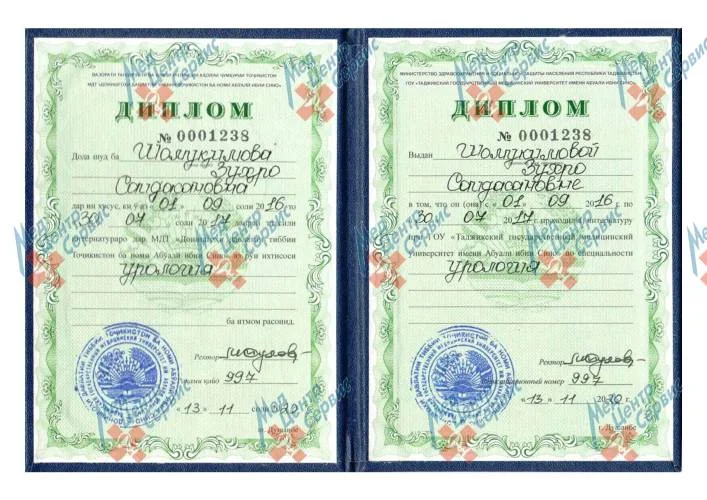 ВАЗОРАТИ ТАНДУРУСТӢ ВА ҲИФЗИ ИҶТИМОИИ АҲОЛИИ ҶУМҲУРИИ ТОҶИКИСТОН
МДТ «ДОНИШГОҲИ ДАВЛАТИИ ТИББИИ ТОҶИКИСТОН БА НОМИ АБӮАЛӢ ИБНИ СИНО»
ДИПЛОМ
№ 0001238
Дода шуд ба Шомукимова
Зухро
Саидасановна
дар ин хусус, ки ӯ аз «01» 09 соли 2016 то
«30» 07 соли 2017
интернатураро дар МДТ «Донишгоҳи давлатии тиббии
Тоҷикистон ба номи Абуалӣ ибни Сино» аз рӯи ихтисоси
урология
ба итмом расонид.
Ректор
Рақами қайд 997
«13» 11 соли 2020
ш. Душанбе
МИНИСТЕРСТВО ЗДРАВООХРАНЕНИЯ И СОЦИАЛЬНОЙ ЗАЩИТЫ НАСЕЛЕНИЯ РЕСПУБЛИКИ ТАДЖИКИСТАН
ГОУ «ТАДЖИКСКИЙ ГОСУДАРСТВЕННЫЙ МЕДИЦИНСКИЙ УНИВЕРСИТЕТ ИМЕНИ АБУАЛИ ИБНИ СИНО»
ДИПЛОМ
№ 0001238
Выдан Шомукимовой
Зухро
Саидасановне
в том, что он (она) с «01» 09 2016 г. по
«30» 07 2017 проходил(а) интернатуру
при ГОУ «Таджикский государственный медицинский
университет имени Абуали ибни Сино» по специальности
урология
Ректор
Регистрационный номер 997
«13» 11 2020 г.
г. Душанбе
Мед Центр Сервис